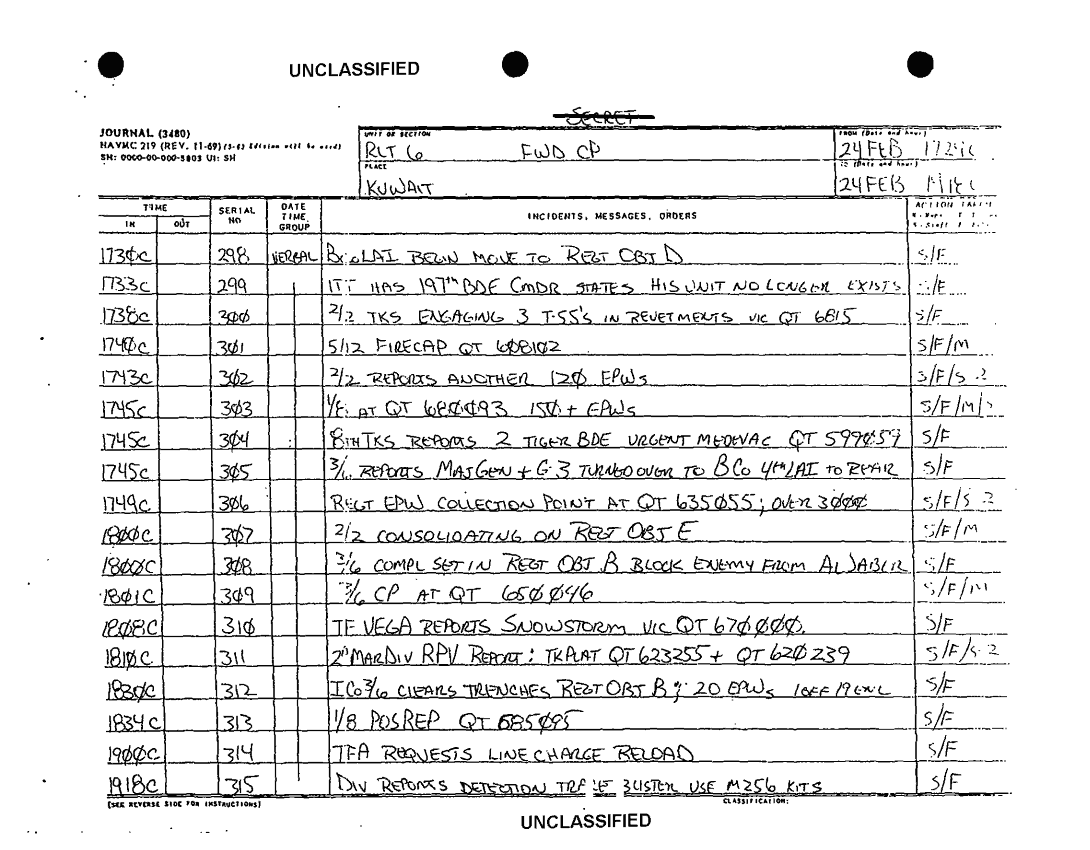 UNCLASSIFIED
SECRET
JOURNAL (3480)
NAVMC 219 (REV. 11-69) (5-63 Edition will be used)
SN: 0000-00-000-5803 U1: SH
UNIT OR SECTION
RLT 6 FWD CP
FROM (Date and hour)
24 FEB
PLACE
KUWAIT
TO (Date and hour)
24 FEB
TIME
IN OUT
SERIAL NO
DATE TIME GROUP
INCIDENTS, MESSAGES, ORDERS
ACTION TAKEN
173Øc 298 VERBAL LAI BEGIN MOVE TO REGT OBJ D S/F
1733c 299 ITT HAS 197th BDE CMDR STATES HIS UNIT NO LONGER EXISTS S/F
1738c 3ØØ 2/2 TKS ENGAGING 3 T-55'S IN REVETMENTS VIC QT 6815 S/F
174Øc 3Ø1 5/12 FIRECAP QT 6Ø81Ø2 S/F/M
1743c 3Ø2 2/2 REPORTS ANOTHER 12Ø EPWs S/F/S-2
1745c 3Ø3 1/8 AT QT 68ØØ93 15Ø+ EPWs S/F/M/
1745c 3Ø4 8TH TKS REPORTS 2 TIGER BDE URGENT MEDEVAC QT 599Ø59 S/F
1745c 3Ø5 3/6 REPORTS MAJGEN + G-3 TURNED OVER TO B CO 4th LAI TO REAR S/F
1749c 3Ø6 REGT EPW COLLECTION POINT AT QT 635Ø55; OVER 3ØØØ S/F/S-2
18ØØc 3Ø7 2/2 CONSOLIDATING ON REGT OBJ E S/F/M
18ØØC 3Ø8 COMPL SET IN REGT OBJ B BLOCK ENEMY FROM AL JABER S/F
18Ø1C 3Ø9 3/6 CP AT QT 65ØØ46 S/F/M
18Ø8C 31Ø TF VEGA REPORTS SNOWSTORM VIC QT 67ØØØØ. S/F
181Øc 311 2d MARDIV RPV REPORT: TKPLAT QT 623255 + QT 62Ø239 S/F/S-2
183ØC 312 I CO 3/6 CLEARS TRENCHES REGT OBJ B; 20 EPWs 1 OFF 19 ENL S/F
1834C 313 1/8 POSREP QT 685Ø95 S/F
19ØØC 314 TFA REQUESTS LINE CHARGE RELOAD S/F
1918C 315 DIV REPORTS DETECTION BLISTER USE M256 KITS S/F
(SEE REVERSE SIDE FOR INSTRUCTIONS)
CLASSIFICATION:
UNCLASSIFIED